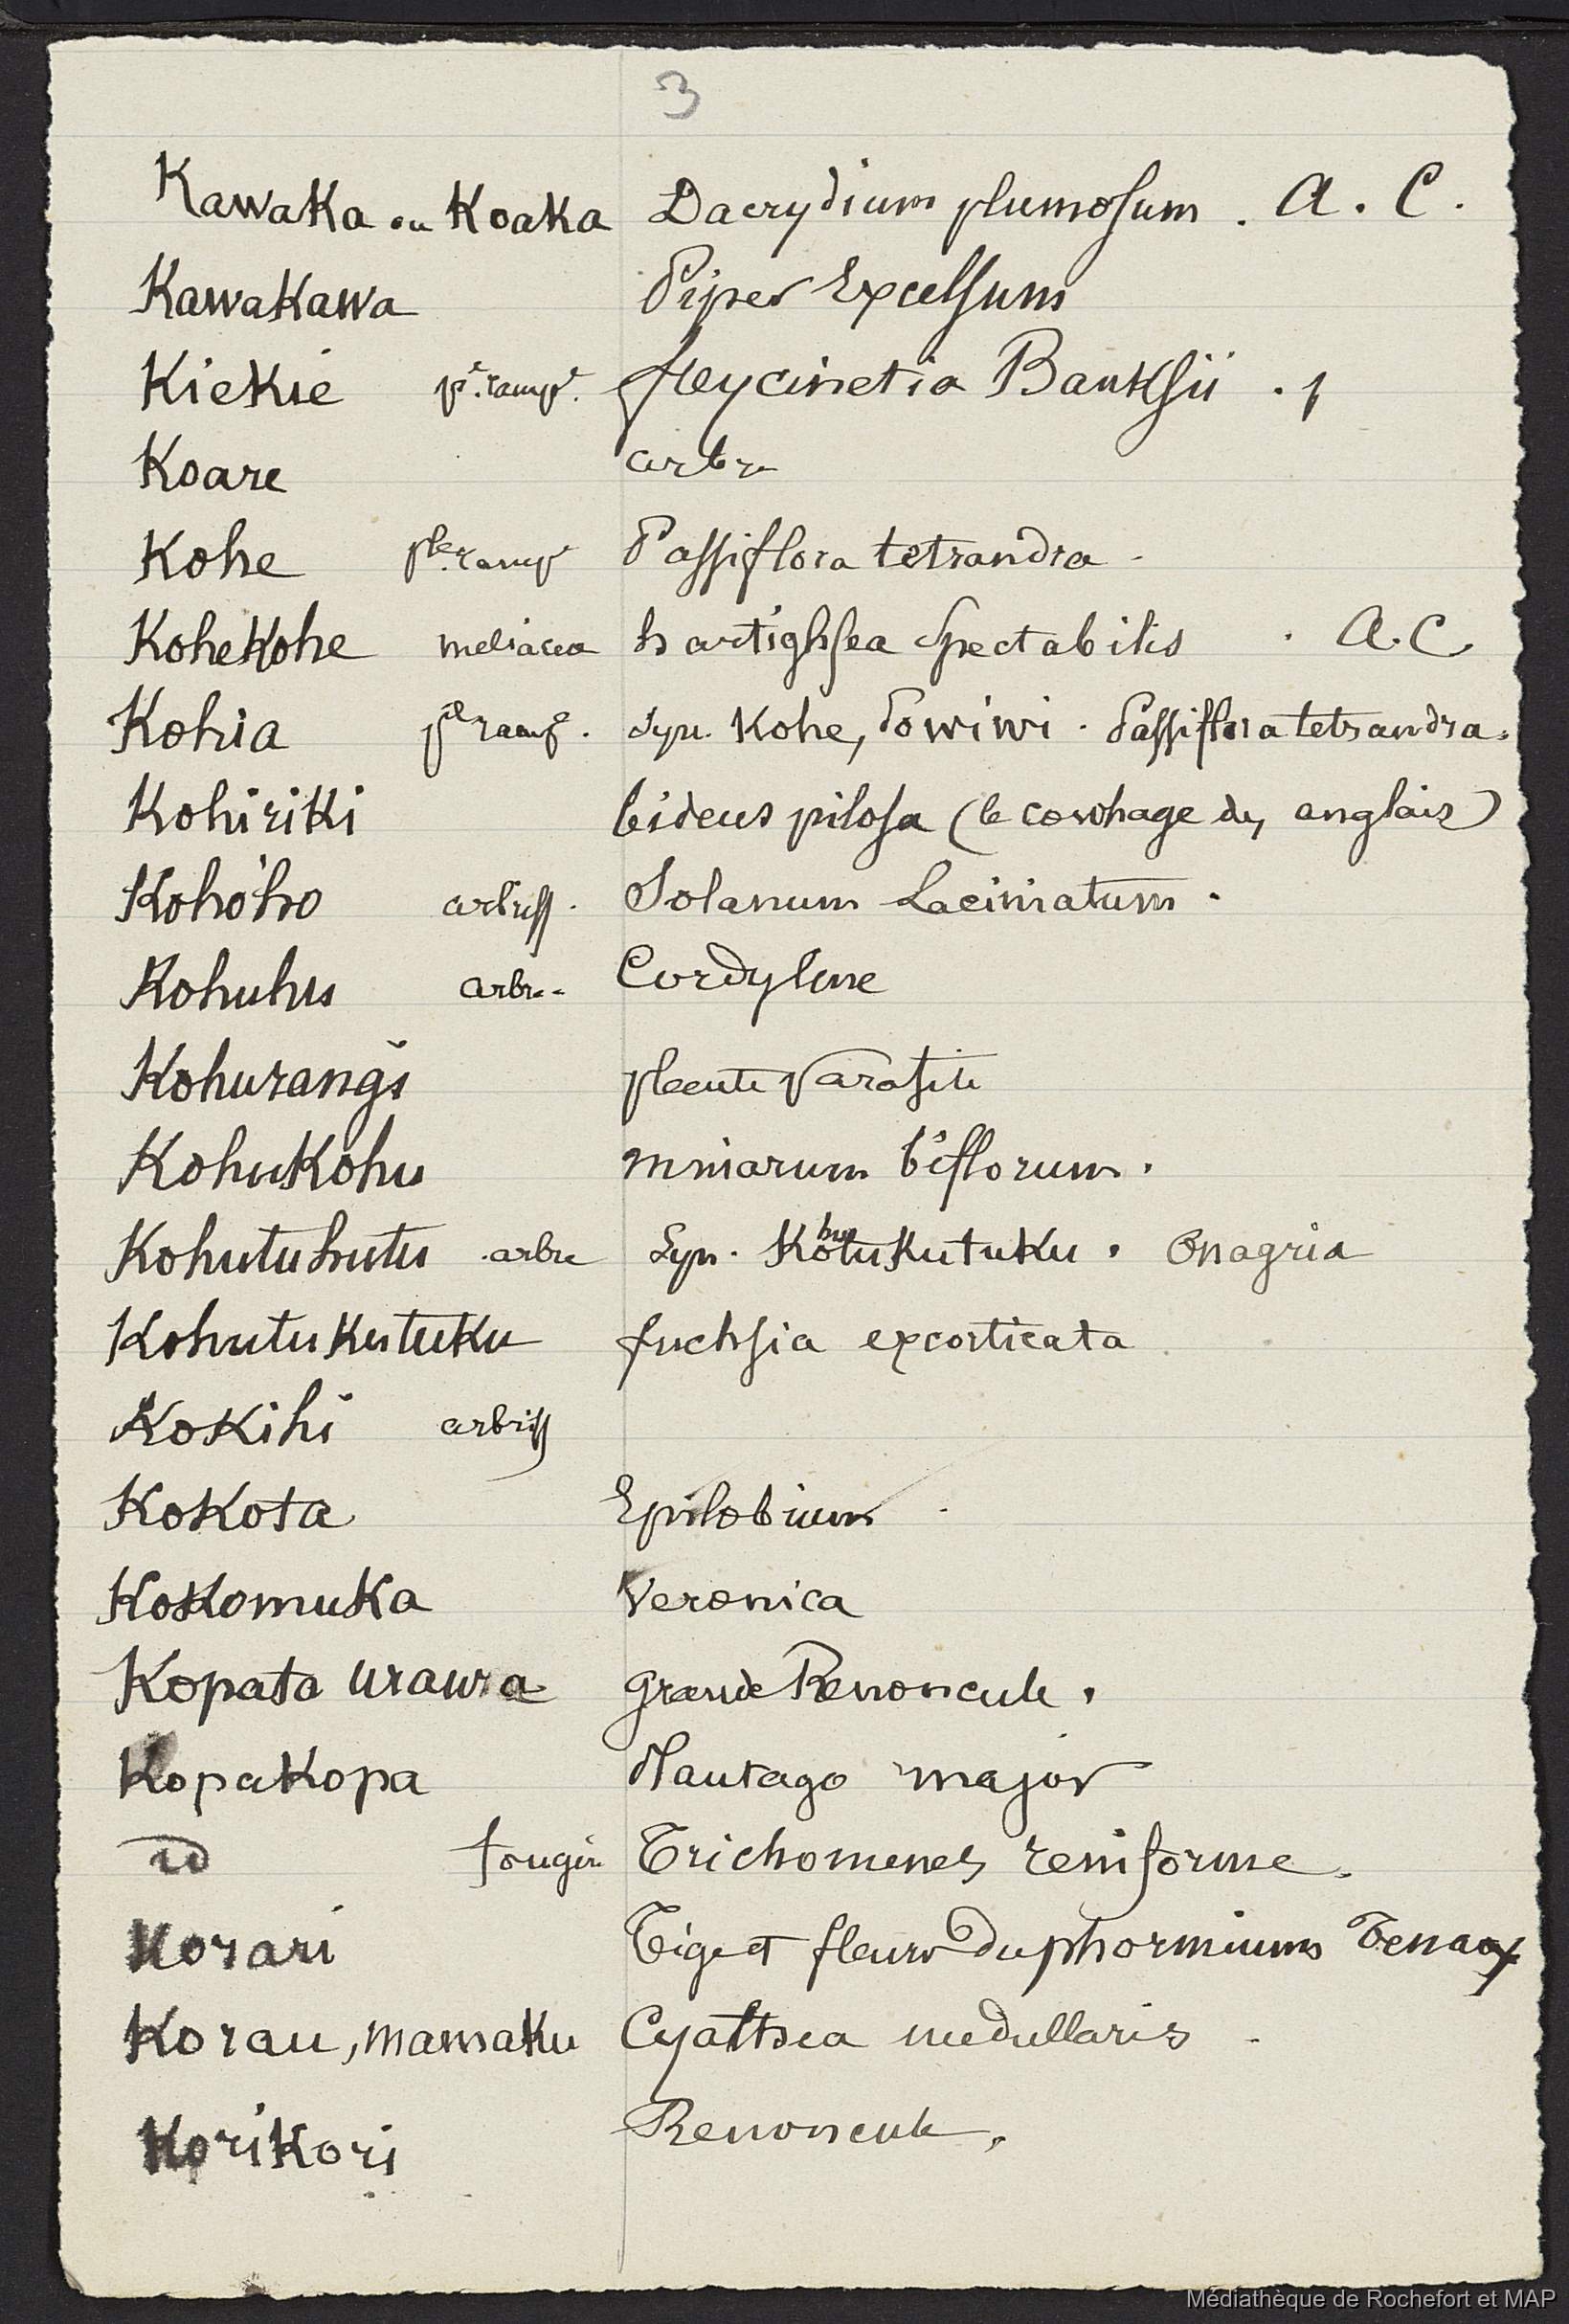 3
Kawaka ou Koaka Dacrydium plumosum . A . C .
Kawakawa Piper Excelsum
Kiekie pte. rampte. freycinetia Banksii .
Koare arbre
Kohe pte. rampte Passiflora tetrandra -
Kohekohe meliacea hartighsea Spectabilis . A. C
Kohia pte ramp . Syn. Kohe, Powiwi . Passiflora tetrandra.
Kohiriki bidens pilosa (le cowhage des anglais)
Kohoho arbriss . Solanum Laciniatum .
Kohuhu arbre - Cordyline
Kohurangi plante Parasite
Kohukohu mniarum biflorum .
Kohutuhutu . arbre Syn . Kohutukutuku . Onagria
Kohutukutuku fuchsia excorticata
Kokihi arbriss
Kokota Epilobium
Kokomuka Veronica
Kopata urawra grande Renoncule .
Kopakopa Plantago major
id fougère Trichomenes reniforme .
Korari Tige et fleurs du phormium Tenax
Korau, mamaku Cyathea medullaris -
Korikori Renoncule .
Médiathèque de Rochefort et MAP